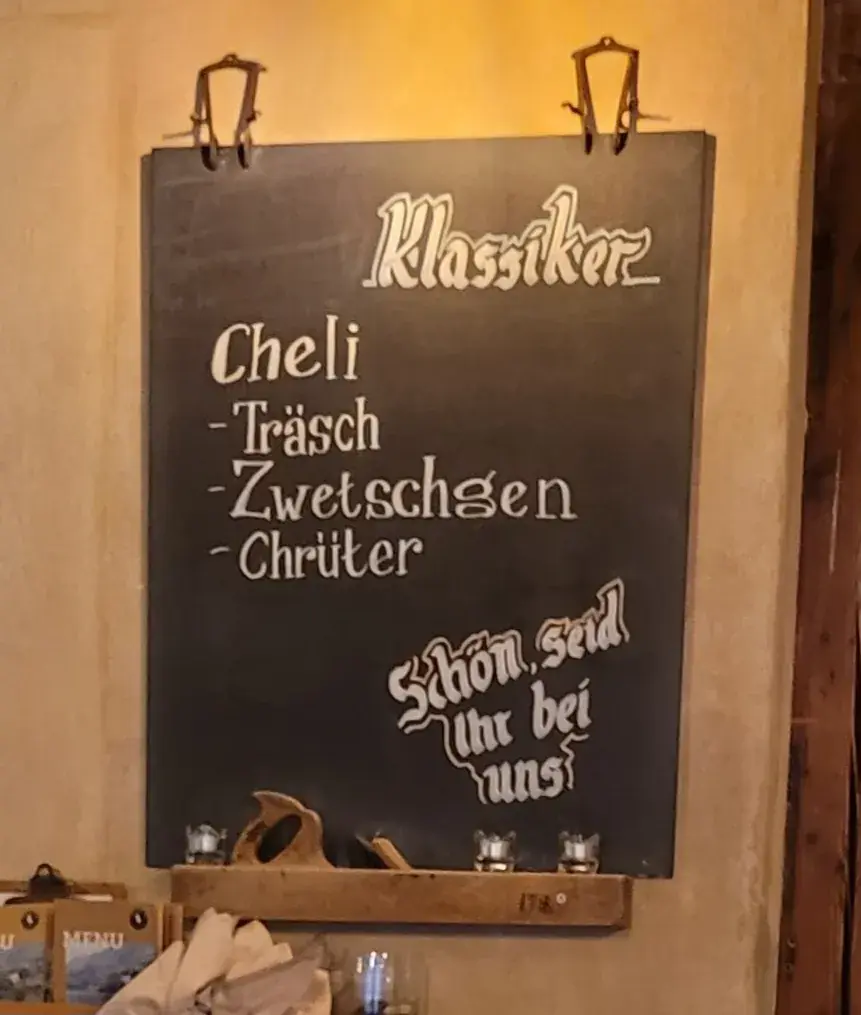 Klassiker
Cheli
-Träsch
-Zwetschgen
-Chrüter
Schön, seid
Ihr bei
uns
MENU